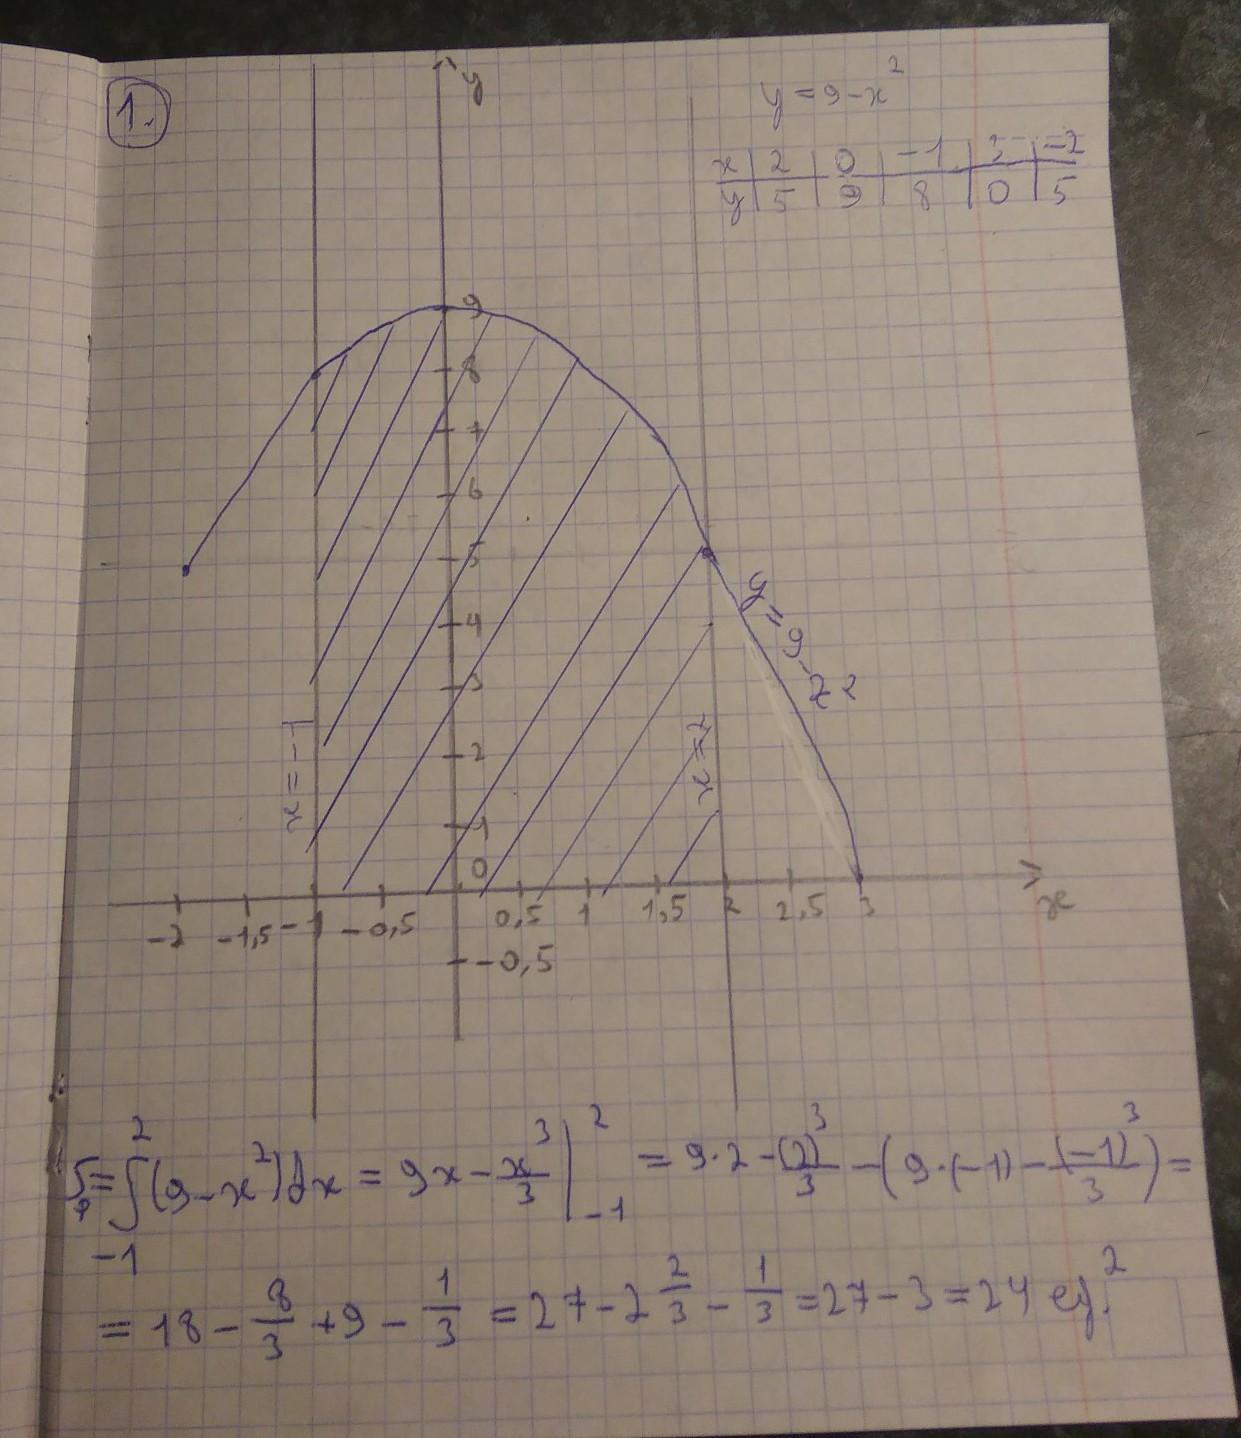 1.
y
y = 9 - x²
x | 2 | 0 | -1 | 3 | -2
y | 5 | 9 | 8 | 0 | 5
9
8
7
6
5
4
3
2
1
0
y = 9 - x²
x = -1
x = 2
-2 -1,5 -1 -0,5 0,5 1 1,5 2 2,5 3 x
-0,5
S = ∫₋₁² (9 - x²) dx = 9x - x³/3 |₋₁² = 9·2 - (2)³/3 - (9·(-1) - (-1)³/3) =
= 18 - 8/3 + 9 - 1/3 = 27 - 2 2/3 - 1/3 = 27 - 3 = 24 eg.²